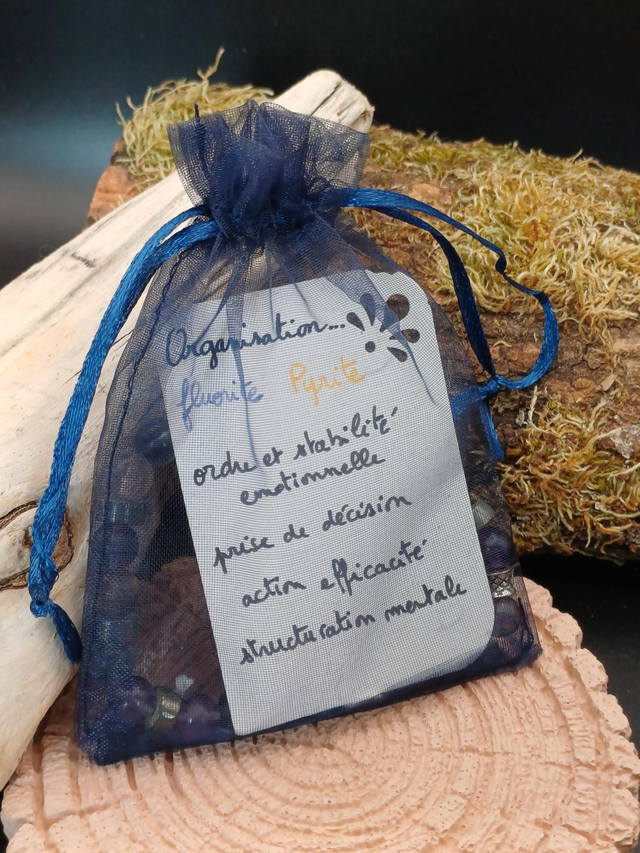 Organisation...
fluorite Pyrite
ordre et stabilité
emotionnelle
prise de décision
action efficacité
structuration mentale